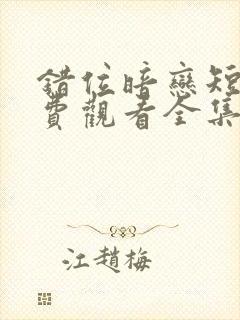 錯位暗戀短
費觀看全集
江趙梅